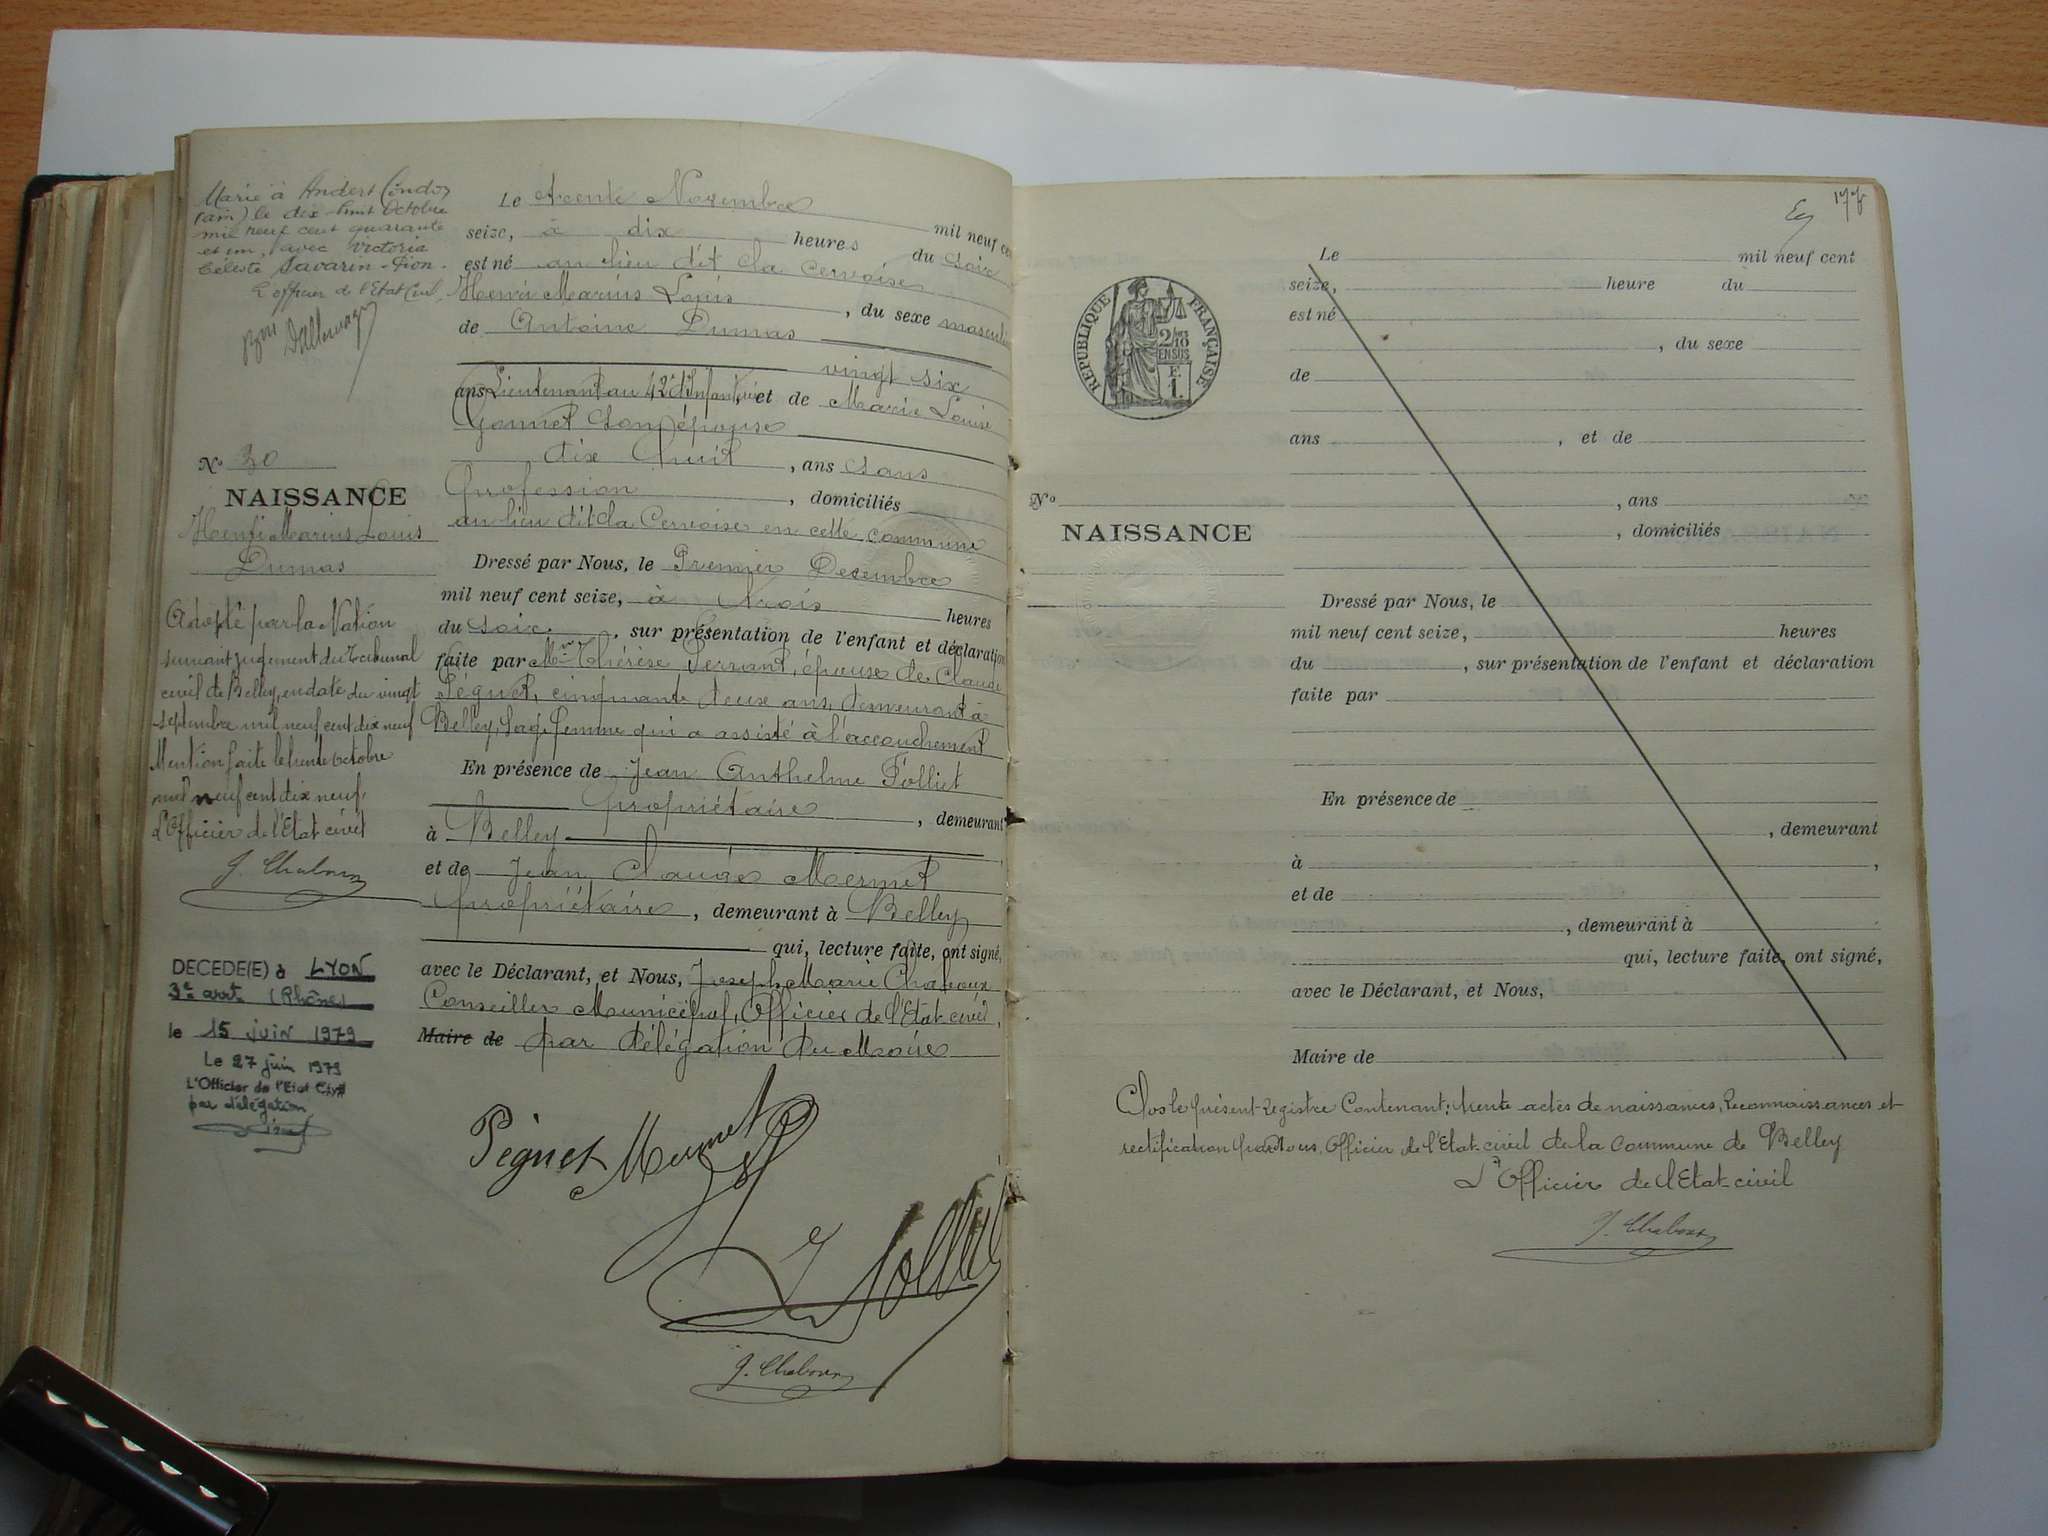 Marié à Andert Condon
(ain) le dix-huit Octobre
mil neuf cent quarante
et un, avec Victoria
Céleste Savarin-Pion.
L'officier de l'Etat Civil
N° 30
NAISSANCE
Henri Marius Louis
Dumas
Adopté par la Nation
suivant jugement du Tribunal
civil de Belley, en date du vingt
septembre mil neuf cent dix neuf
Mention faite le trente Octobre
mil neuf cent dix neuf,
L'Officier de l'Etat civil
J. Chaboux
DECEDE(E) à LYON
3e arrt (Rhône)
le 15 juin 1979
Le 27 juin 1979
L'Officier de l'Etat Civil
par délégation
Le trente Novembre mil neuf cent
seize, à dix heures du soir
est né au lieu dit la Cervoise
Henri Marius Louis, du sexe masculin
de Antoine Dumas
vingt six
ans Lieutenant au 42e d'Infanterie, et de Marie Louise
Gonnet son épouse
dix huit, ans sans
profession, domiciliés
au lieu dit la Cervoise en cette commune
Dressé par Nous, le Premier Decembre
mil neuf cent seize, à trois heures
du soir, sur présentation de l'enfant et déclaration
faite par Mme Thérèse Ferrand, épouse de Claude
Péguet, cinquante deux ans, demeurant à
Belley, Sage femme qui a assisté à l'accouchement
En présence de Jean Anthelme Folliet
propriétaire, demeurant
à Belley
et de Jean Claude Mermet
propriétaire, demeurant à Belley
qui, lecture faite, ont signé,
avec le Déclarant, et Nous, Joseph Marie Chaboux
Conseiller Municipal, Officier de l'Etat-civil,
Maire de par délégation du Maire
Péguet Mermet
J Folliet
J. Chaboux
177
REPUBLIQUE FRANÇAISE
2/10
EN SUS
F.
1.
Le mil neuf cent
seize, heure du
est né
, du sexe
de
ans , et de
N° , ans
NAISSANCE , domiciliés
Dressé par Nous, le
mil neuf cent seize, heures
du , sur présentation de l'enfant et déclaration
faite par
En présence de
, demeurant
à ,
et de
, demeurant à
qui, lecture faite, ont signé,
avec le Déclarant, et Nous,
Maire de
Clos le présent registre Contenant: trente actes de naissances, Reconnaissances et
rectification par Nous, Officier de l'Etat-civil de la Commune de Belley
L'Officier de l'Etat-civil
J. Chaboux